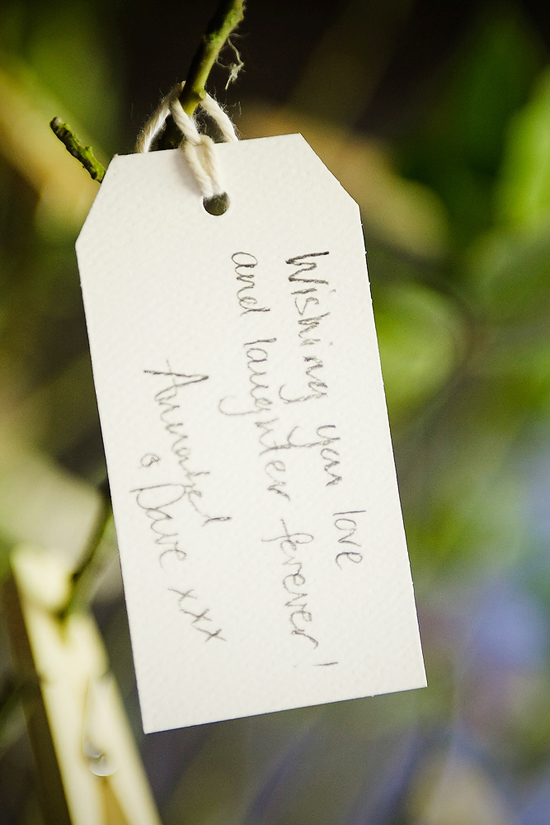 Wishing you love
and laughter forever!
Annabel
& Dave xxx